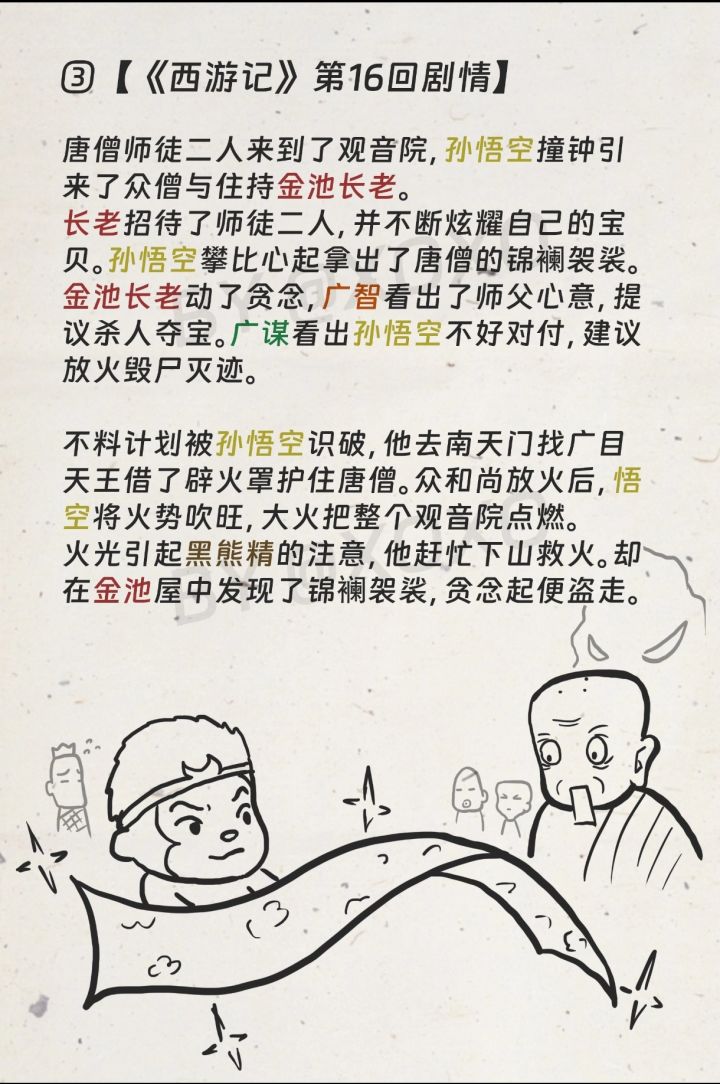 ③【《西游记》第16回剧情】
唐僧师徒二人来到了观音院,孙悟空撞钟引
来了众僧与住持金池长老。
长老招待了师徒二人,并不断炫耀自己的宝
贝。孙悟空攀比心起拿出了唐僧的锦襕袈裟。
金池长老动了贪念,广智看出了师父心意,提
议杀人夺宝。广谋看出孙悟空不好对付,建议
放火毁尸灭迹。
不料计划被孙悟空识破,他去南天门找广目
天王借了辟火罩护住唐僧。众和尚放火后,悟
空将火势吹旺,大火把整个观音院点燃。
火光引起黑熊精的注意,他赶忙下山救火。却
在金池屋中发现了锦襕袈裟,贪念起便盗走。